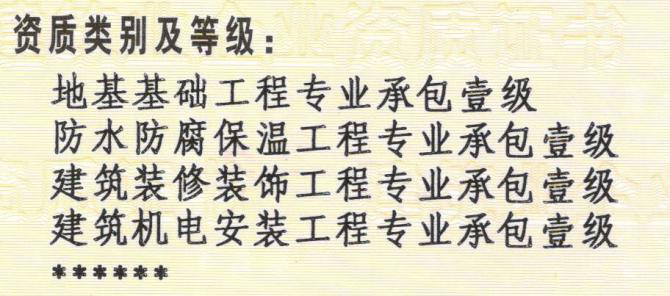 资质类别及等级：
地基基础工程专业承包壹级
防水防腐保温工程专业承包壹级
建筑装修装饰工程专业承包壹级
建筑机电安装工程专业承包壹级
******